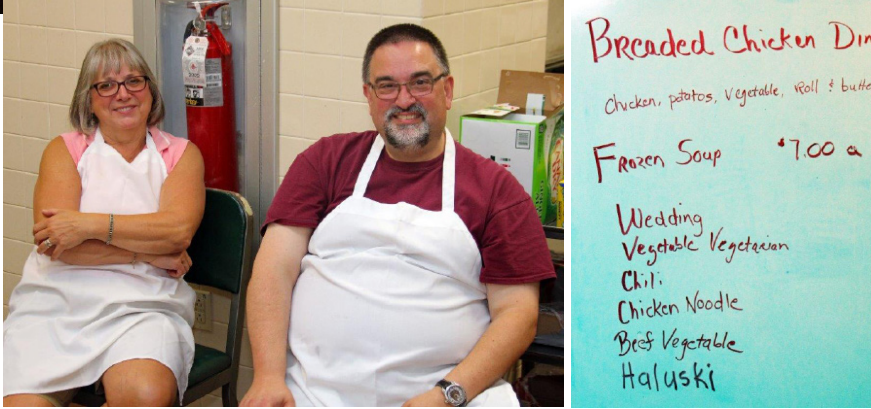 Breaded Chicken Din
Chicken, potatos, vegetable, Roll & butte
Frozen Soup $7.00 a
Wedding
Vegetable Vegetarian
Chili
Chicken Noodle
Beef Vegetable
Haluski